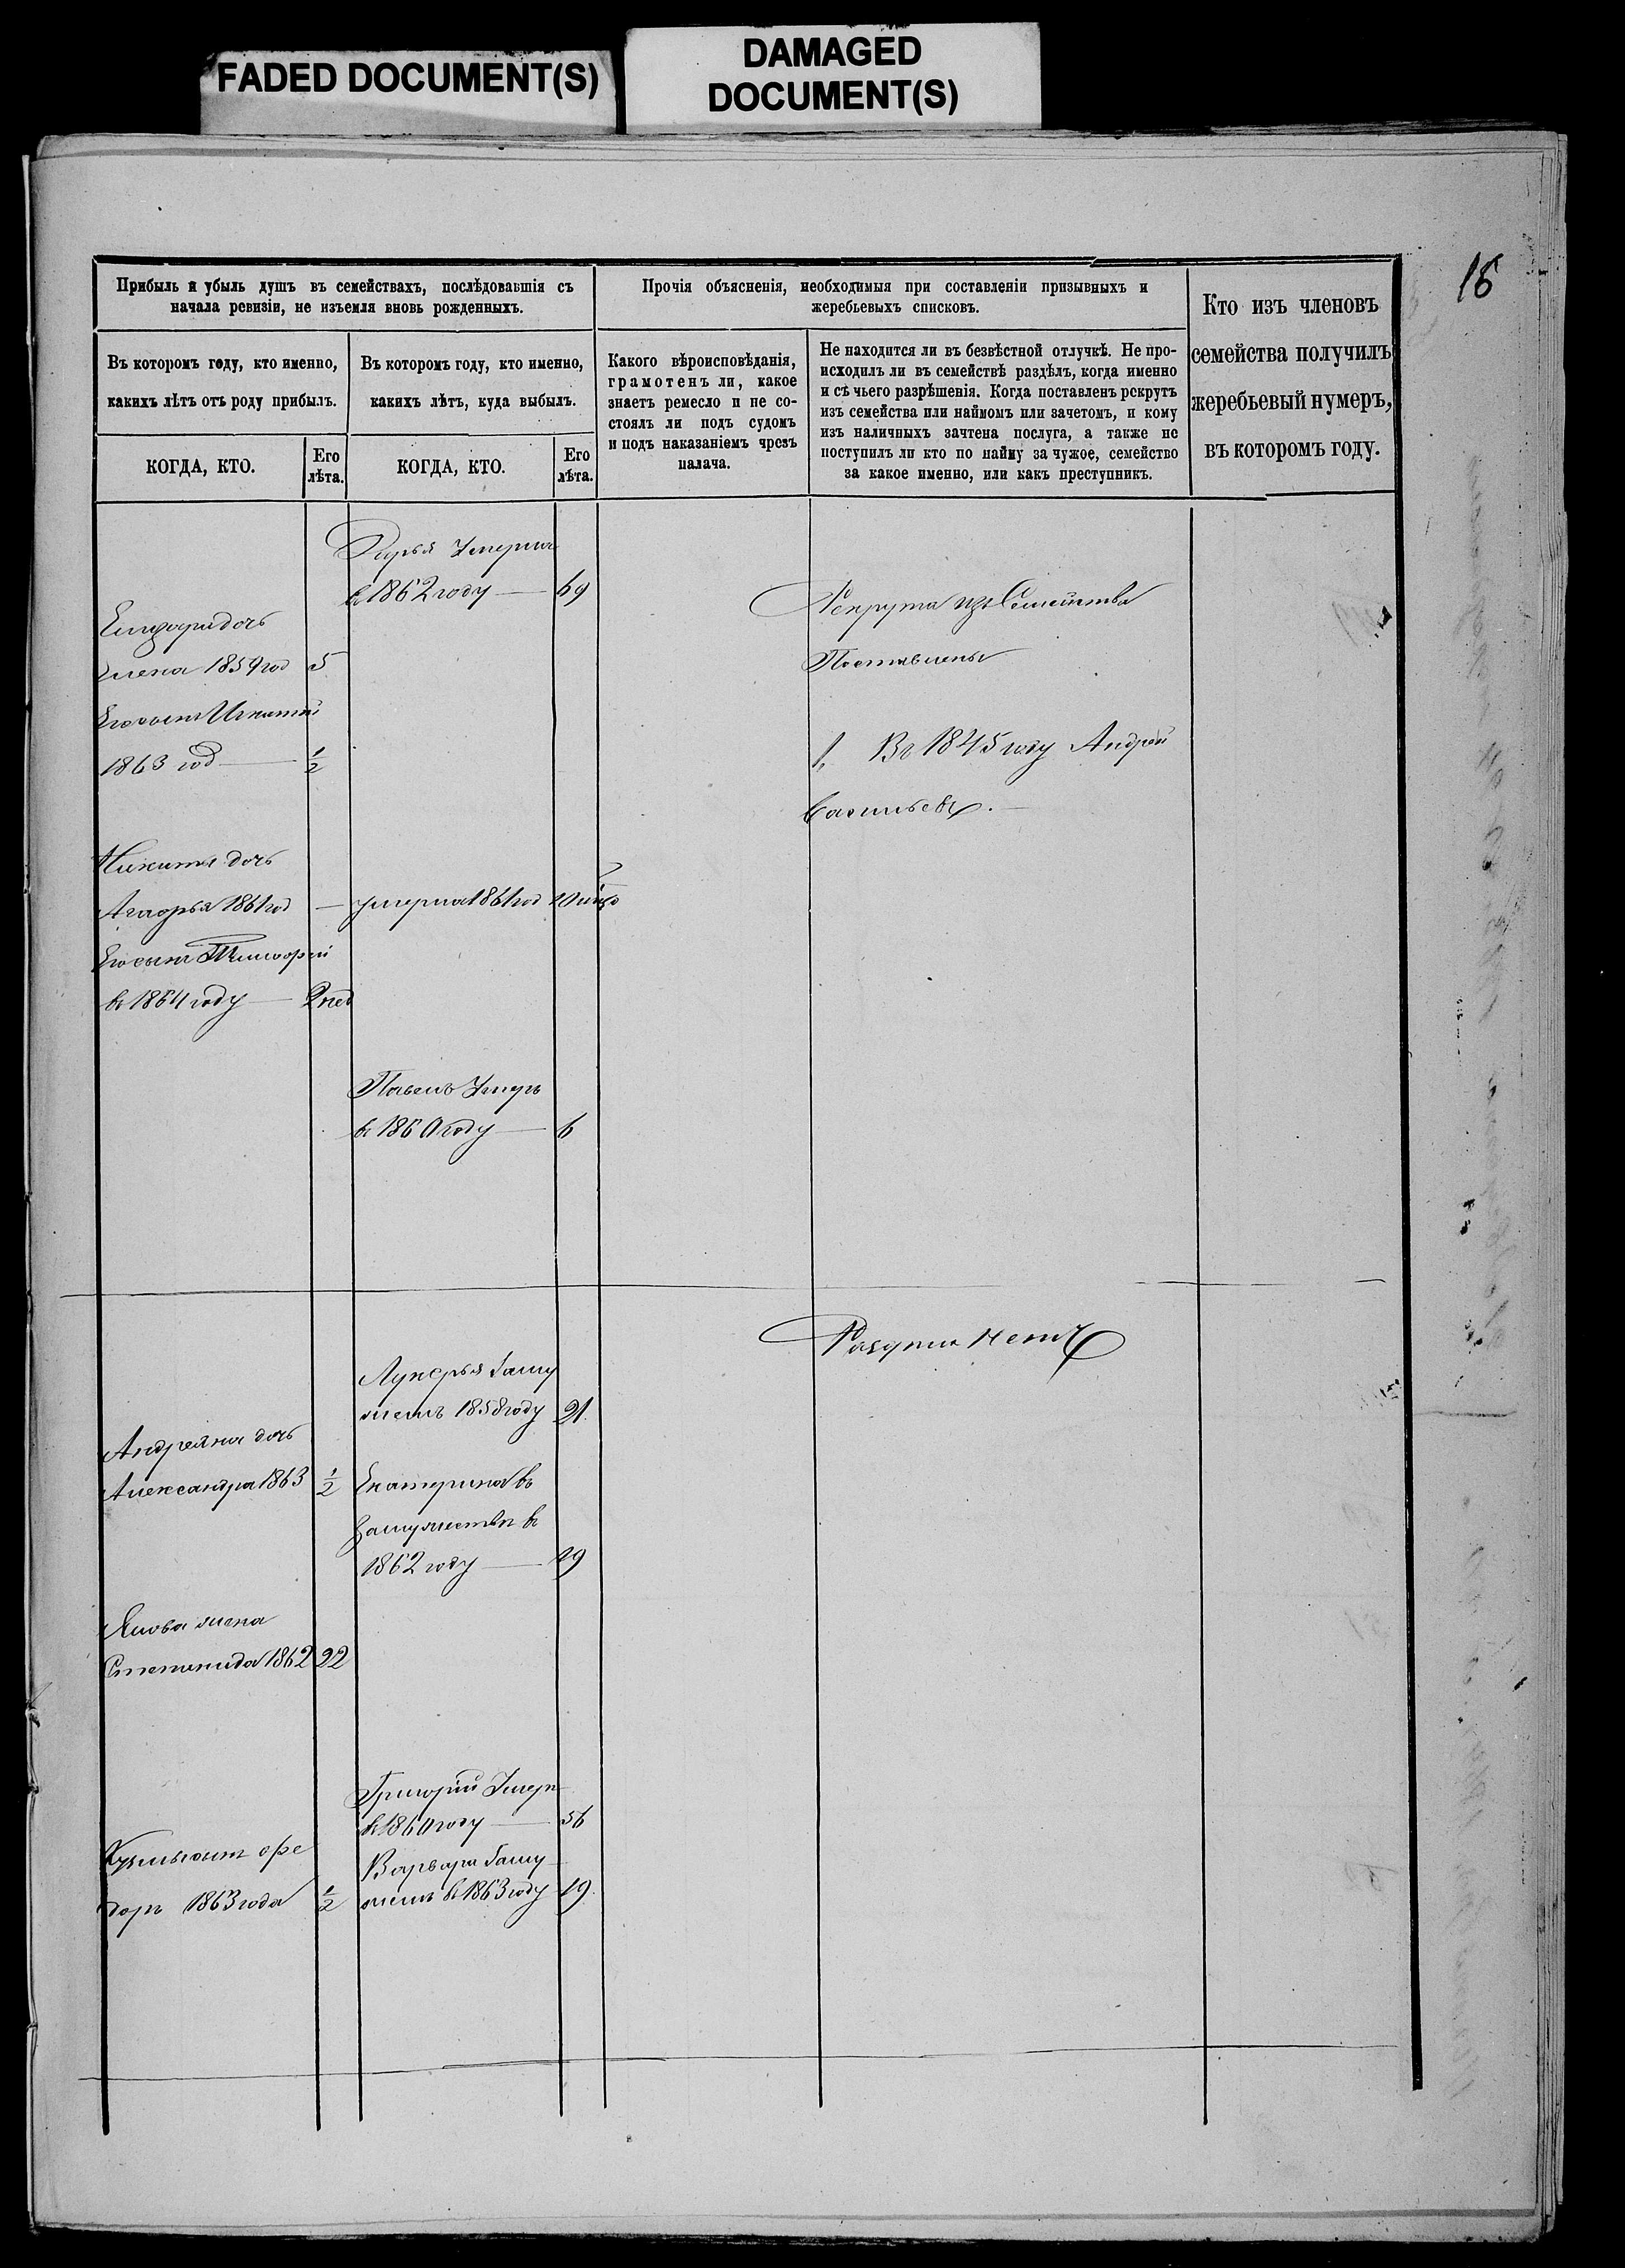 FADED DOCUMENT(S)
DAMAGED
DOCUMENT(S)
16
Прибыль и убыль душъ въ семействахъ, послѣдовавшія съ
начала ревизіи, не изъемля вновь рожденныхъ.
Прочія объясненія, необходимыя при составленіи призывныхъ и
жеребьевыхъ списковъ.
Кто изъ членовъ
семейства получилъ
жеребьевый нумеръ,
въ которомъ году.
Въ которомъ году, кто именно,
какихъ лѣтъ отъ роду прибылъ.
Въ которомъ году, кто именно,
какихъ лѣтъ, куда выбылъ.
Какого вѣроисповѣданія,
грамотенъ ли, какое
знаетъ ремесло и не со-
стоялъ ли подъ судомъ
и подъ наказаніемъ чрезъ
палача.
Не находится ли въ безвѣстной отлучкѣ. Не про-
исходилъ ли въ семействѣ раздѣлъ, когда именно
и съ чьего разрѣшенія. Когда поставленъ рекрутъ
изъ семейства или наймомъ или зачетомъ, и кому
изъ наличныхъ зачтена послуга, а также не
поступилъ ли кто по найму за чужое, семейство
за какое именно, или какъ преступникъ.
КОГДА, КТО.
Его
лѣта.
КОГДА, КТО.
Его
лѣта.
Дарья Умерла
в 1862 году — 69
дочь
Елена 1859 год 5
Его сынъ Игнатій
1863 год — 1/2
Рекрута изъ Семейства
Поставлены
1. Въ 1845 году Андрей
Васильевъ. —
Никиты дочь
1861 год — умерла 1861 год
Его сынъ Тимофей
въ 1864 году — 2 нед
Павелъ Умеръ
в 1860 году — 6
нетъ
Лукерья Заму
жемъ 1858 году 21.
Андреяна дочь
Александра 1863 1/2
Екатерина въ
Замужестве въ
1862 году — 19
жена
Степанида 1862 22
Григорій Умеръ
в 1860 году — 56
Кузьмы сынъ Фе
доръ 1863 года 1/2
Варвара Заму
жемъ в 1863 году 19.